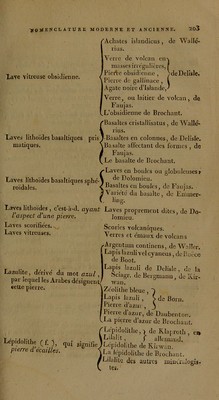 NOMENCLATURE MODERNE ET ANCIENNE. 203
Achates islandicus, de Wallé-
rius.
Verre de volcan en
masses irrégulières,
Lave vitreuse obsidienne. Pierre obsidienne, de Delisle.
Pierre de gallinace,
Agate noire d'Islande,
Verre, ou laitier de volcan, de
Faujas.
L'obsidienne de Brochant.
Basaltes cristallisatus, de Wallé-
rius.
Laves lithoïdes basaltiques pris- Basaltes en colonnes, de Delisle.
matiques. Basalte affectant des formes, de
Faujas.
Le basalte de Brochant.
Laves en boules ou globuleuses
de Dolomieu.
Laves lithoïdes basaltiques sphé- Basaltes en boules, de Faujas.
roïdales. Variété du basalte, de Emmer-
ling.
Laves lithoïdes, c'est-à-d. ayant Laves proprement dites, de Do-
l'aspect d'une pierre. lomieu.
Laves scorifiées. Scories volcaniques.
Laves vitreuses. Verres et émaux de volcans
Argentum continens, de Waller.
Lapis lazuli vel cyaneus, de Boèce
de Boot.
Lapis lazuli de Delisle, de la
Lazulite, dérivé du mot azul, Sciagr. de Bergmann, de Kir-
par lequel les Arabes désignent wan.
cette pierre. Zéolithe bleue,
Lapis lazuli, de Born.
Pierre d'azur,
Pierre d'azur, de Daubenton.
La pierre d'azur de Brochant.
Lépidolithe, de Klaproth, en
Lilalit, allemand.
Lépidolithe (f.), qui signifie Lépidolite de Kirwan.
pierre d'écailles. La lépidolithe de Brochant.
Lilalite des autres minéralogis-
tes.